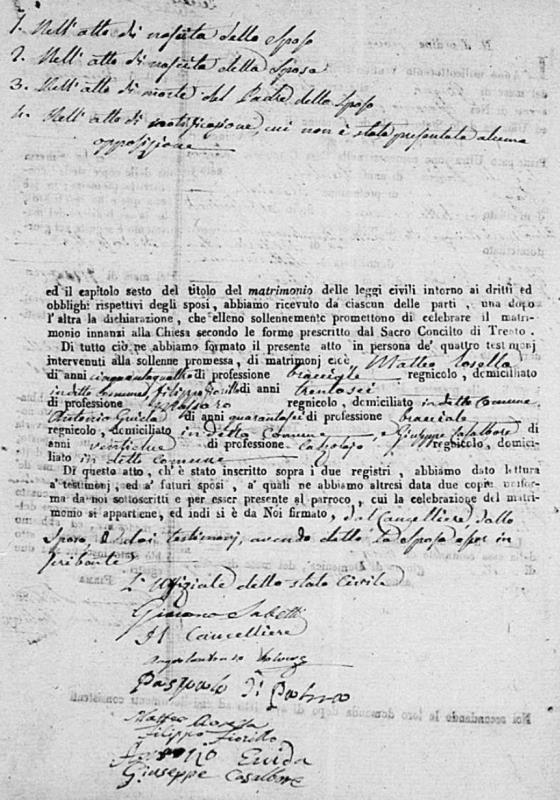 1. Nell' atto di nascita dello sposo
2. Nell' atto di nascita della sposa
3. Nell' atto di morte del Padre dello sposo
4. Nell' atto di notificazione, cui non è stata presentata alcuna
opposizione
ed il capitolo sesto del titolo del matrimonio delle leggi civili intorno ai dritti ed
obblighi rispettivi degli sposi, abbiamo ricevuto da ciascun delle parti, una dopo
l'altra la dichiarazione, che elleno sollennemente promettono di celebrare il matri-
monio innanzi alla Chiesa secondo le forme prescritto dal Sacro Concilto di Trento.
Di tutto ciò ne abbiamo formato il presente atto in persona de' quattro testimonj
intervenuti alla sollenne promessa, di matrimonj cioè Matteo
di anni cinquantaquattro di professione bracciale regnicolo, domiciliato
in detto Comune, Filippo Fiorillo di anni trentasei
di professione regnicolo, domiciliato in detto Comune
Antonio Guida di anni quarantasei di professione bracciale
regnicolo, domiciliato in detto Comune, e Giuseppe Casalbore di
anni ventidue di professione calzolaio regnicolo, domici-
liato in detto Comune
Di questo atto, ch'è stato inscritto sopra i due registri, abbiamo dato lettura
a' testimonj, ed a' futuri sposi, a' quali ne abbiamo altresì data due copie unifor-
ma da noi sottoscritti e per esser presente al parroco, cui la celebrazione del matri-
monio si appartiene, ed indi si è da Noi firmato, dal Cancelliere, dallo
Sposo, e dai testimonj, avendo detto la sposa esser in
scribente
L' Uffiziale dello stato Civile
Sabetti
Il Cancelliere
Pasquale Di Palma
Matteo
Filippo Fiorillo
Antonio Guida
Giuseppe Casalbore